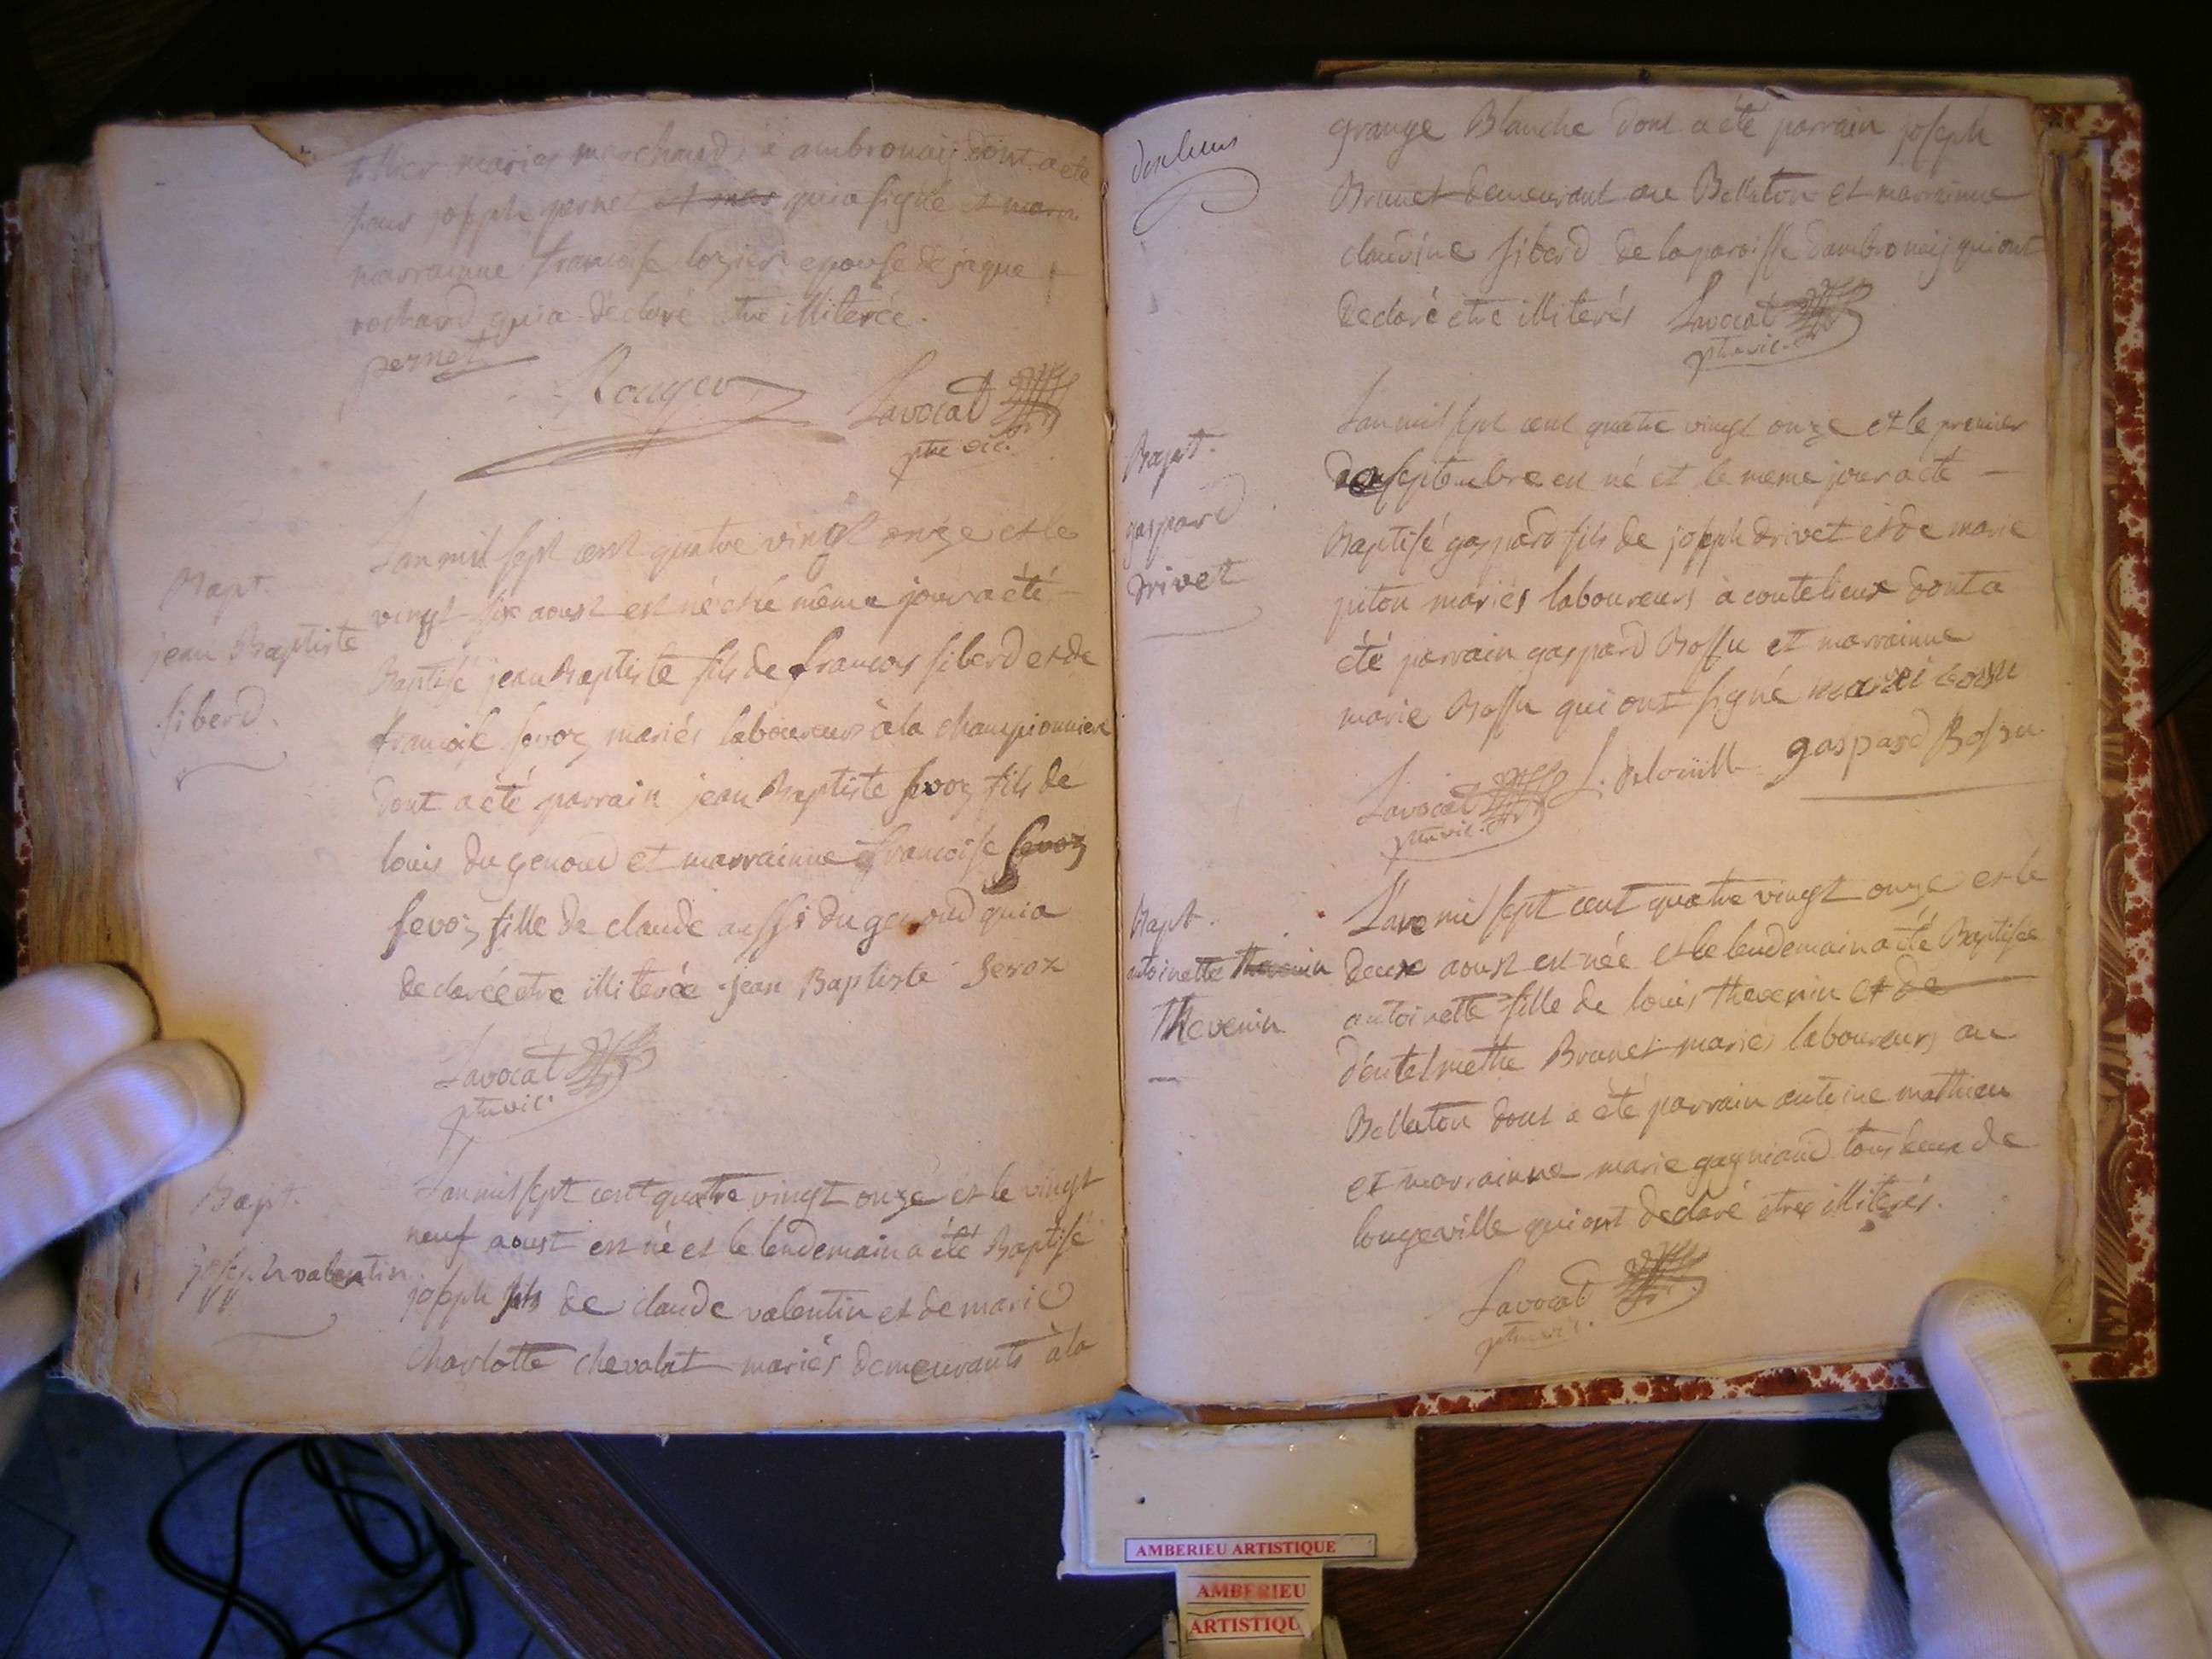 mariés marchands a ambronaij dont a été
joseph pernet et mar qui a signé et marr
marrainne francoise lozier epouse de jaque
rochard qui a déclaré être illiterée.
pernet
Rouyer
Lavocat
ptre vic.
Bapt.
jean Baptiste
siberd.
L'an mil sept cent quatre vingt onze et le
vingt six aoust est né et le même jour a été
Baptisé jean Baptiste fils de francois siberd et de
francoise sevoz mariés laboureurs à la championniere
dont a été parrain jean Baptiste sevoz fils de
louis du genoud et marrainne francoise sevoz
sevoz fille de claude aussi du genoud qui a
declarée etre illiterée jean Baptiste Sevoz
Lavocat
ptre vic.
Bapt.
joseph valentin
L'an mil sept cent quatre vingt onze et le vingt
neuf aoust est né et le lendemain a été Baptisé
joseph fils de claude valentin et de marie
charlotte chevalat mariés demeurants à la
grange Blanche dont a été parrain joseph
Brunet demeurant au Bellaton et marrainne
claudine siberd de la paroisse d'ambronaij qui ont
declaré etre illiterés Lavocat
ptre vic.
Bapt.
gaspard
drivet
L'an mil sept cent quatre vingt onze et le premier
de septembre est né et le meme jour a été
Baptisé gaspard fils de joseph drivet et de marie
piton mariés laboureurs à coutelieux dont a
été parrain gaspard Bossu et marrainne
marie Bossu qui ont signé marie bossu
Lavocat gaspard Bossu
ptre vic.
Bapt.
antoinette thevenin
Thevenin
L'an mil sept cent quatre vingt onze et le
deux aoust est née et le lendemain a été Baptisée
antoinette fille de louis thevenin et de
d'entelmethe Brunet mariés laboureurs au
Bellaton dont a été parrain antoine mathieu
et marrainne marie gagniard tous deux de
longeville qui ont declaré etre illiterés.
Lavocat
ptre vic.
AMBERIEU ARTISTIQUE
AMBERIEU
ARTISTIQU